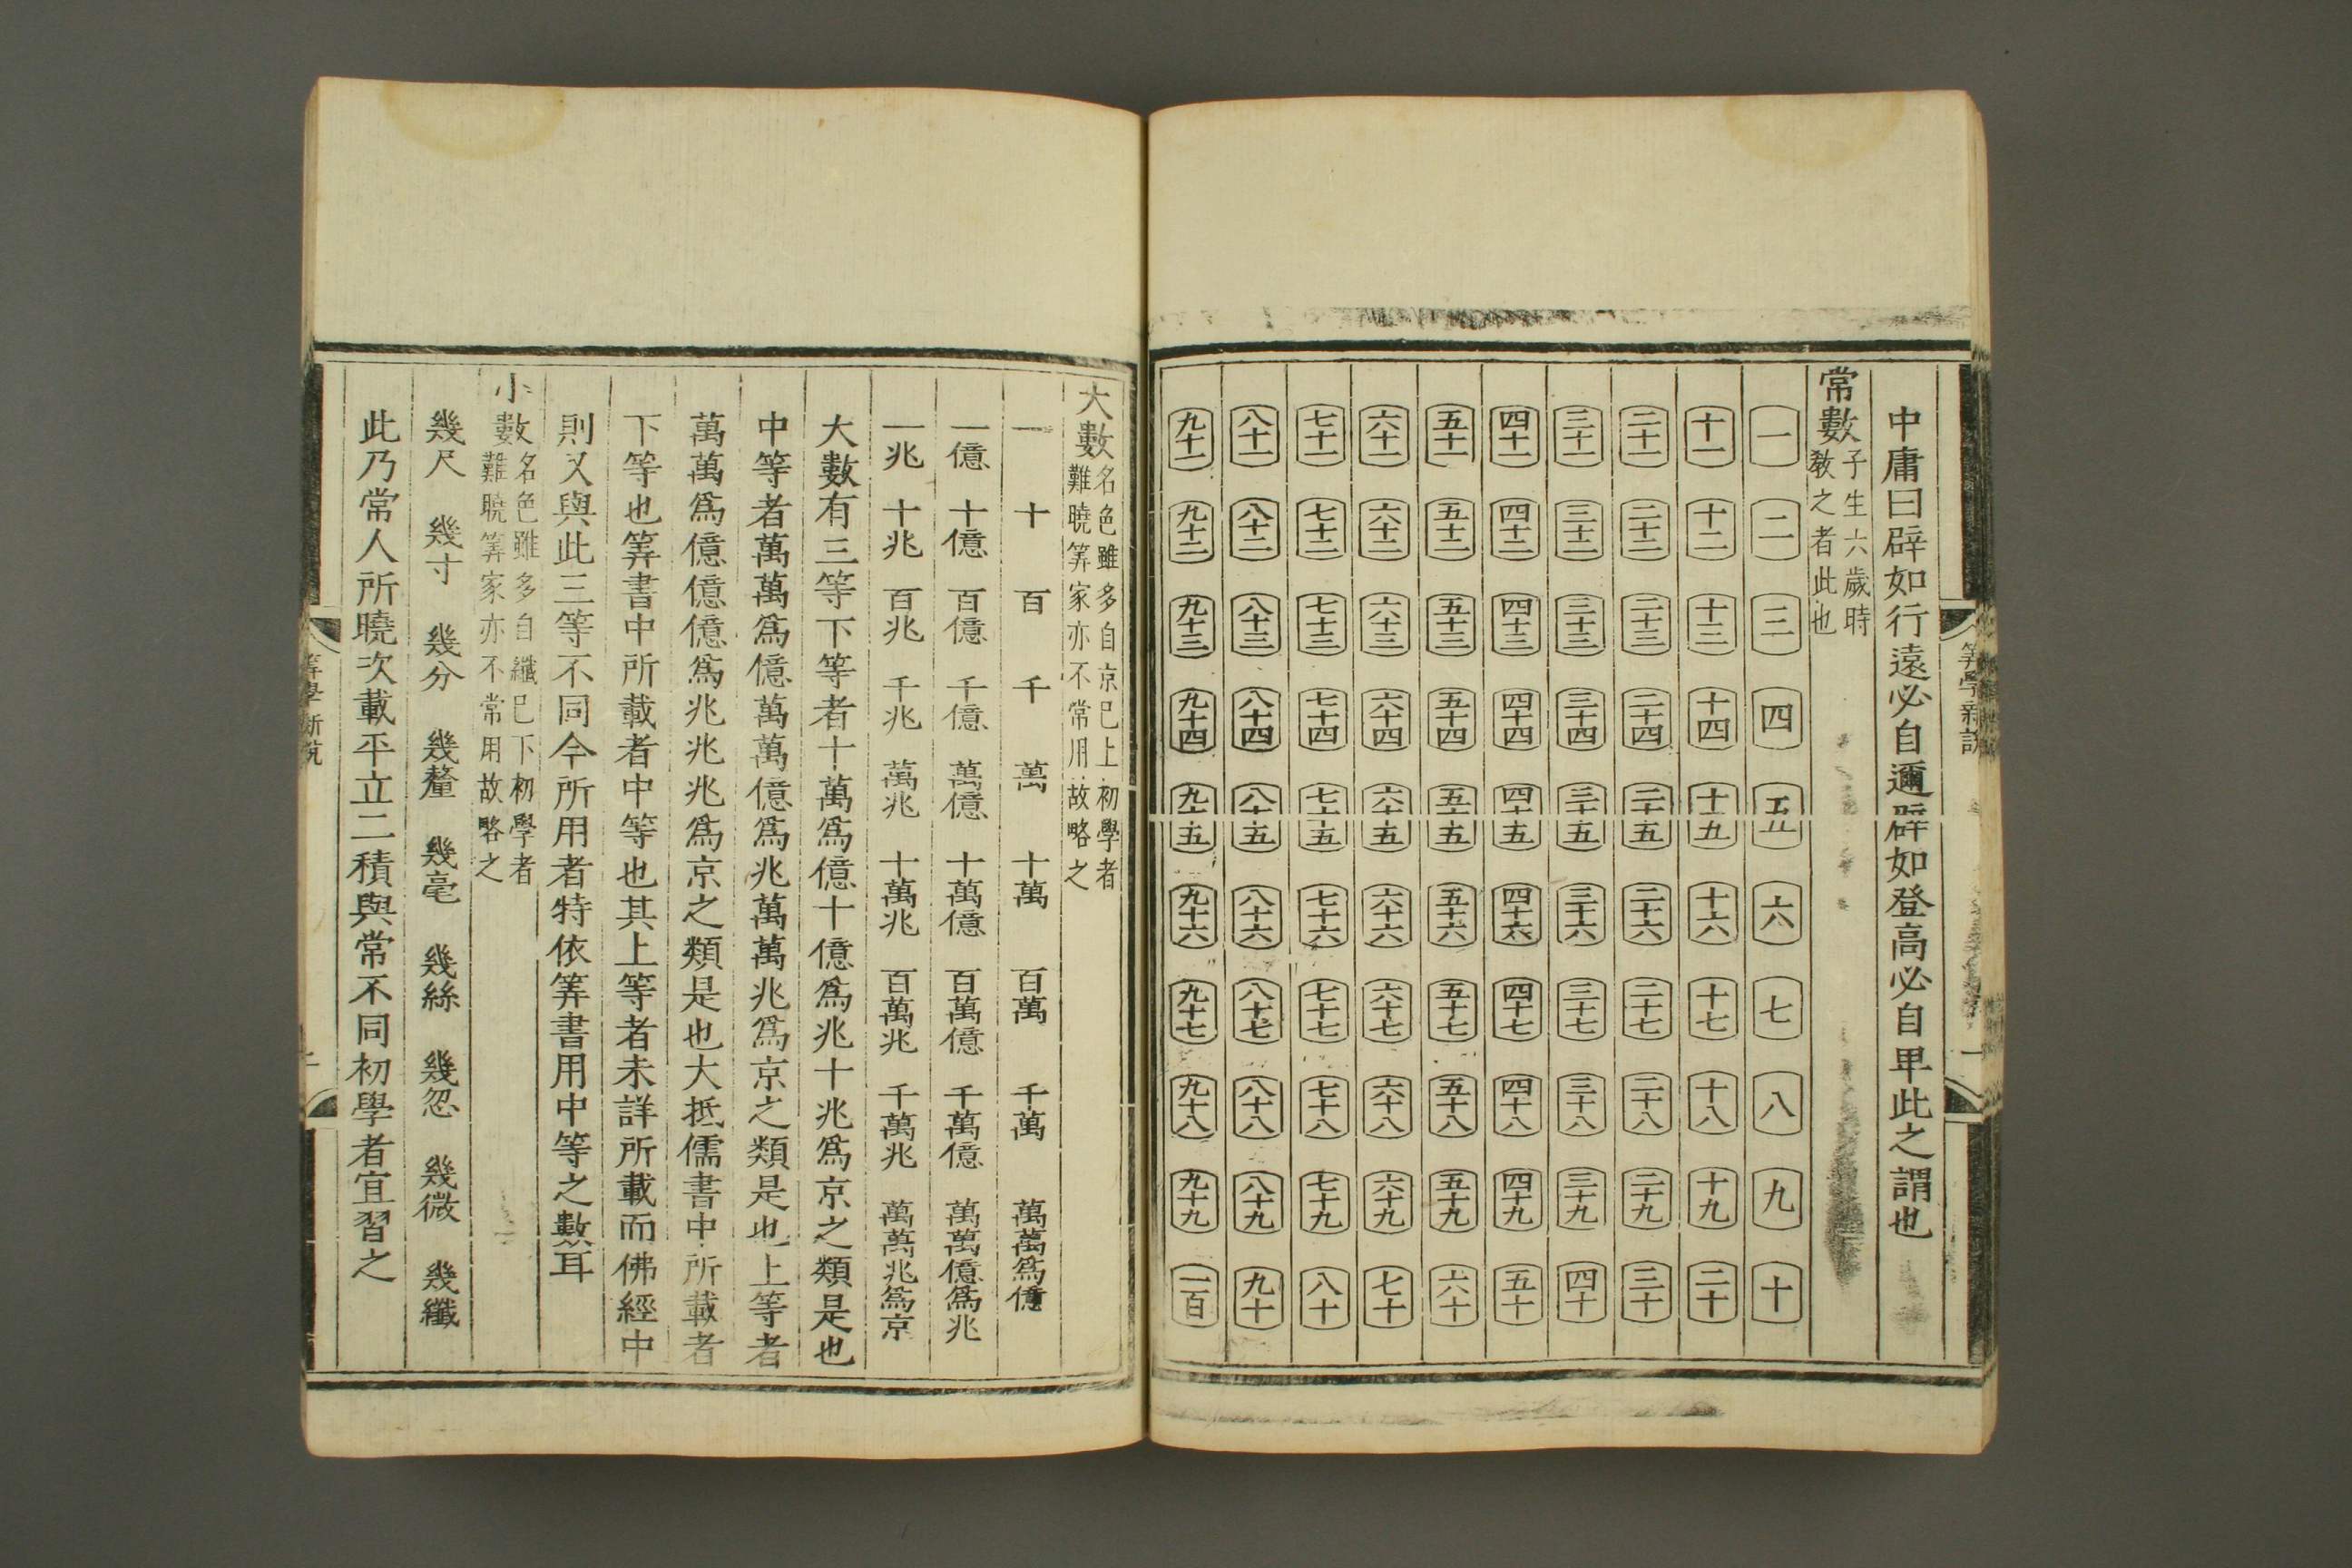 中庸曰辟如行遠必自邇辟如登高必自卑此之謂也
常數子生六歲時教之者此也
一 二 三 四 五 六 七 八 九 十
十一 十二 十三 十四 十五 十六 十七 十八 十九 二十
二十一 二十二 二十三 二十四 二十五 二十六 二十七 二十八 二十九 三十
三十一 三十二 三十三 三十四 三十五 三十六 三十七 三十八 三十九 四十
四十一 四十二 四十三 四十四 四十五 四十六 四十七 四十八 四十九 五十
五十一 五十二 五十三 五十四 五十五 五十六 五十七 五十八 五十九 六十
六十一 六十二 六十三 六十四 六十五 六十六 六十七 六十八 六十九 七十
七十一 七十二 七十三 七十四 七十五 七十六 七十七 七十八 七十九 八十
八十一 八十二 八十三 八十四 八十五 八十六 八十七 八十八 八十九 九十
九十一 九十二 九十三 九十四 九十五 九十六 九十七 九十八 九十九 一百
大數名色雖多自京已上初學者難曉筭家亦不常用故略之
一 十 百 千 萬 十萬 百萬 千萬 萬萬爲億
一億 十億 百億 千億 萬億 十萬億 百萬億 千萬億 萬萬億爲兆
一兆 十兆 百兆 千兆 萬兆 十萬兆 百萬兆 千萬兆 萬萬兆爲京
大數有三等下等者十萬爲億十億爲兆十兆爲京之類是也
中等者萬萬爲億萬萬億爲兆萬萬兆爲京之類是也上等者
萬萬爲億億億爲兆兆兆爲京之類是也大抵儒書中所載者
下等也筭書中所載者中等也其上等者未詳所載而佛經中
則又與此三等不同今所用者特依筭書用中等之數耳
小數名色雖多自纖已下初學者難曉筭家亦不常用故略之
幾尺 幾寸 幾分 幾釐 幾毫 幾絲 幾忽 幾微 幾纖
此乃常人所曉次載平立二積與常不同初學者宜習之
筭學新說